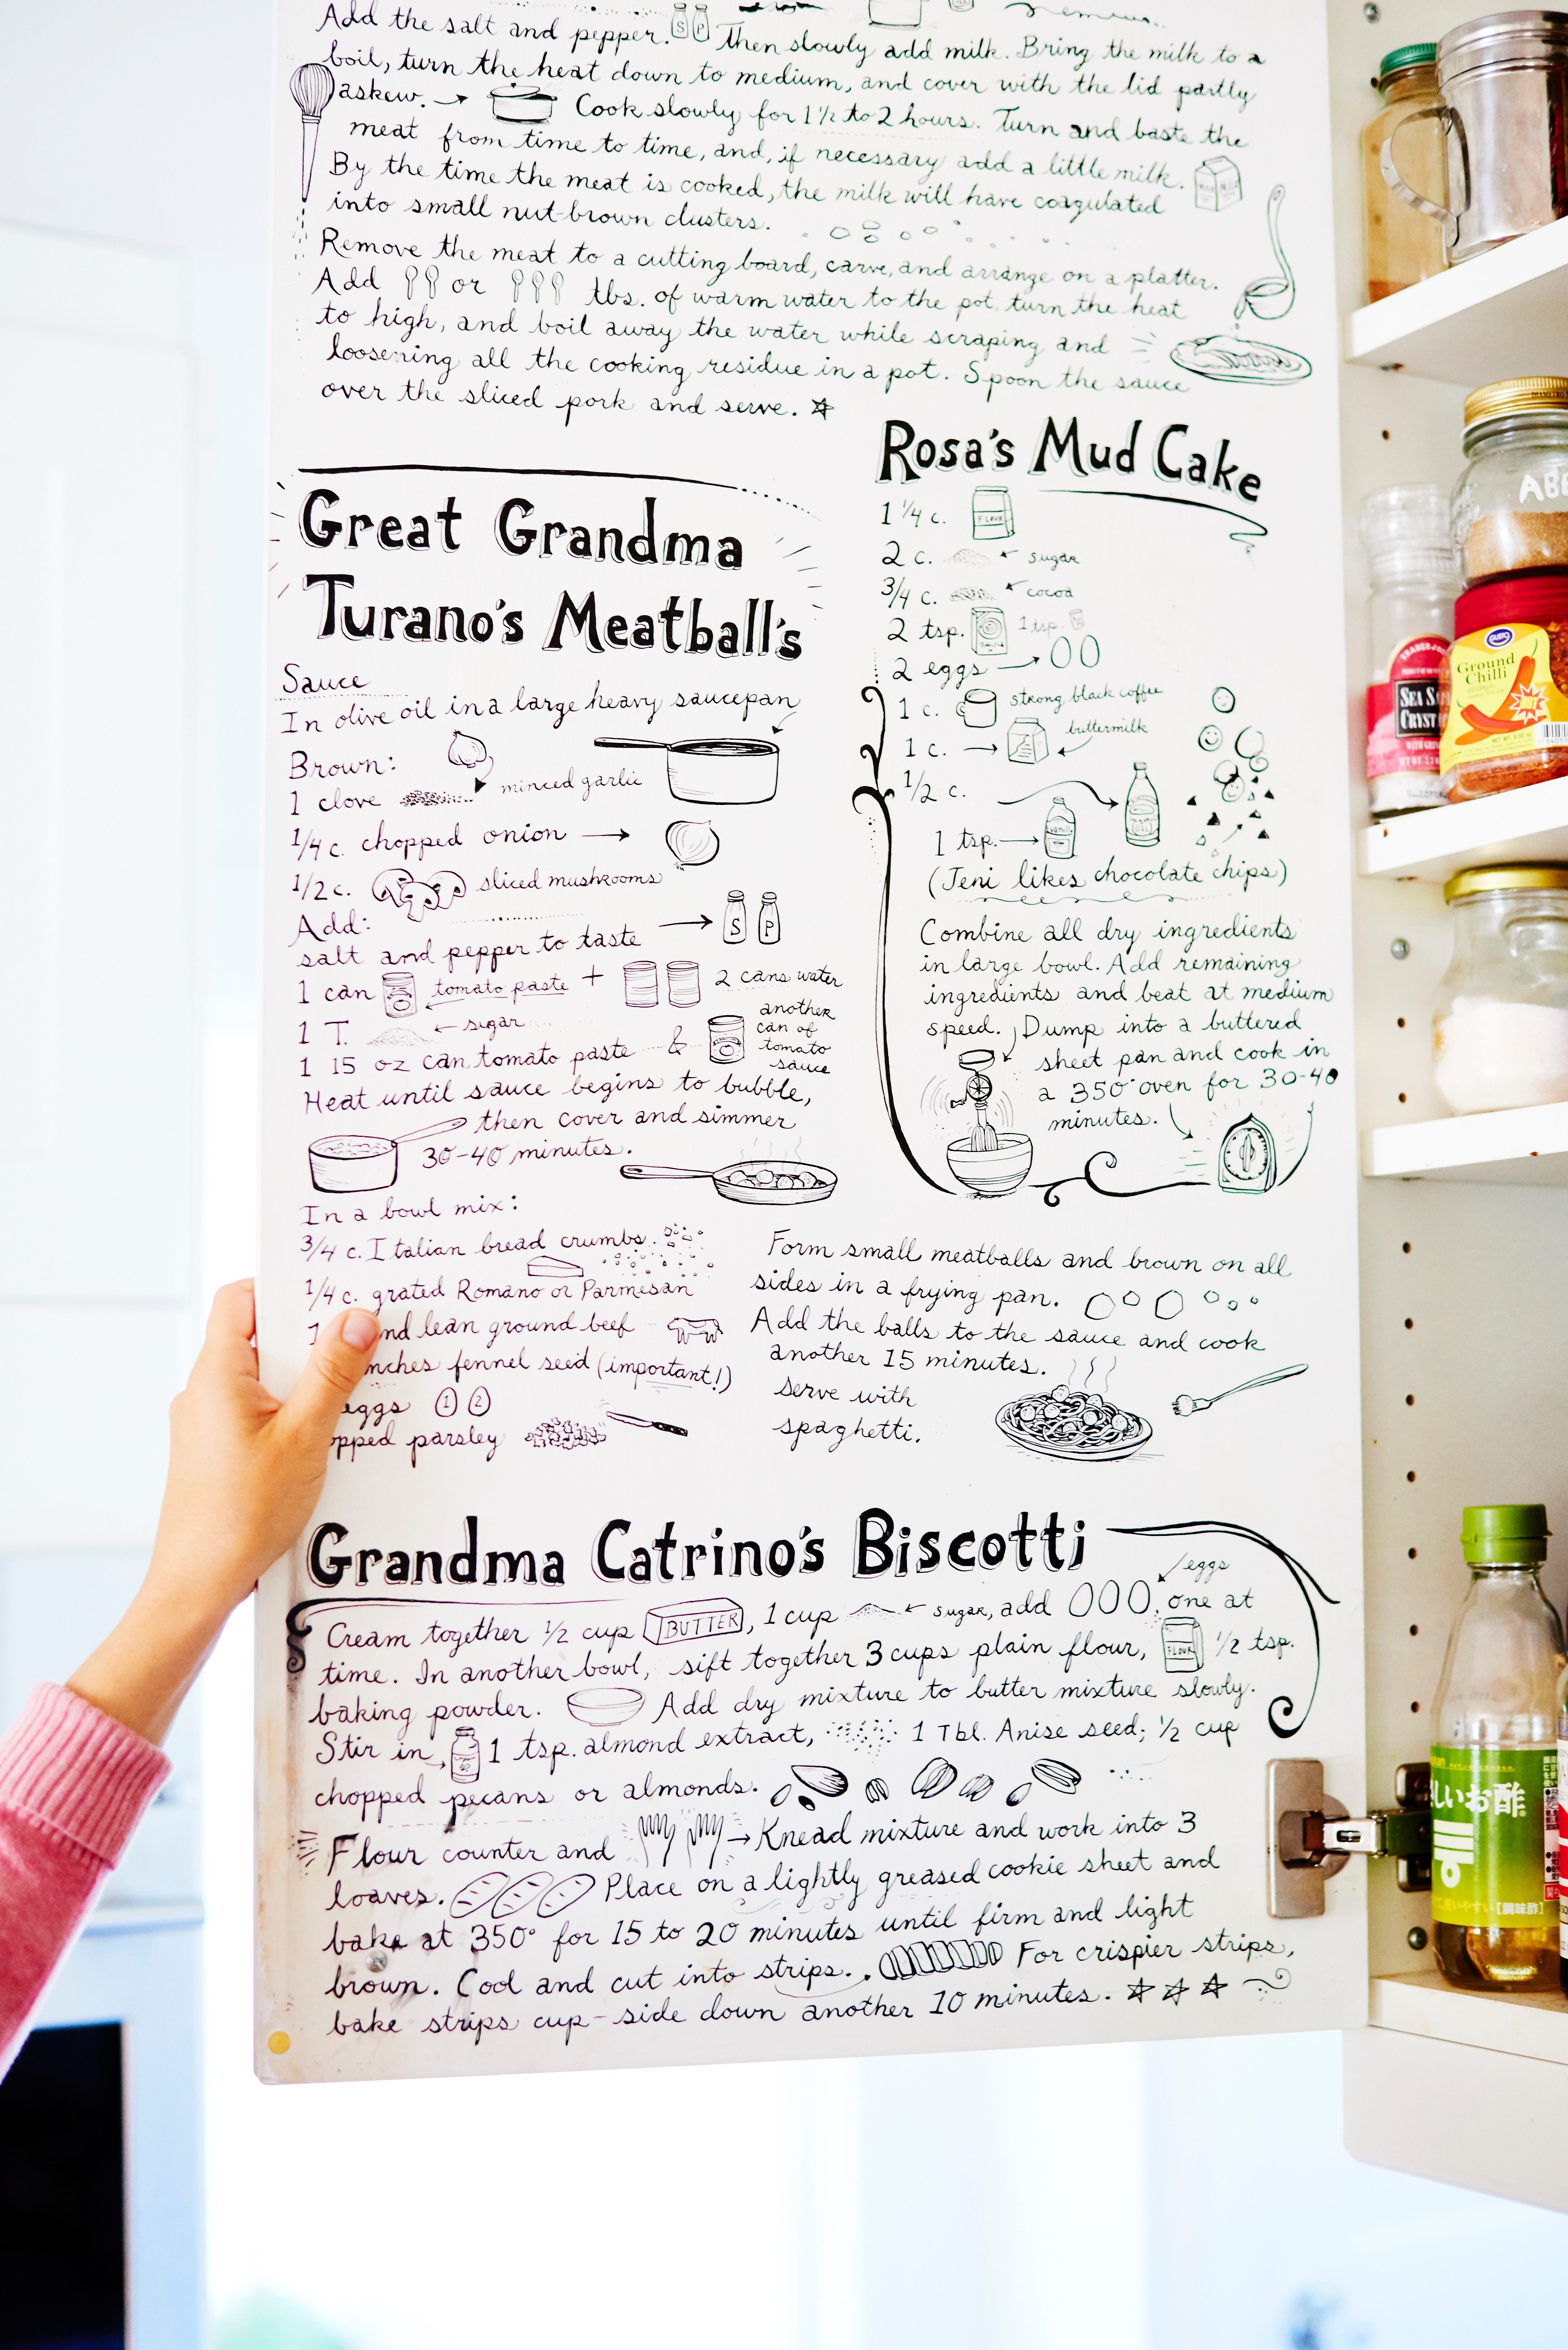 Add the salt and pepper. S P Then slowly add milk. Bring the milk to a
boil, turn the heat down to medium, and cover with the lid partly
askew. Cook slowly for 1 1/2 to 2 hours. Turn and baste the
meat from time to time, and, if necessary add a little milk.
By the time the meat is cooked, the milk will have coagulated
into small nut-brown clusters.
Remove the meat to a cutting board, carve, and arrange on a platter.
Add or tbs. of warm water to the pot, turn the heat
to high, and boil away the water while scraping and
loosening all the cooking residue in a pot. Spoon the sauce
over the sliced pork and serve.
Great Grandma
Turano's Meatball's
Sauce
In olive oil in a large heavy saucepan
Brown:
1 clove minced garlic
1/4 c. chopped onion
1/2 c. sliced mushrooms
Add:
salt and pepper to taste S P
1 can tomato paste + 2 cans water
1 T. sugar
1 15 oz can tomato paste & another can of tomato sauce
Heat until sauce begins to bubble,
then cover and simmer
30-40 minutes.
In a bowl mix:
3/4 c. Italian bread crumbs.
1/4 c. grated Romano or Parmesan
nd lean ground beef
nches fennel seed (important!)
eggs 1 2
opped parsley
Form small meatballs and brown on all
sides in a frying pan.
Add the balls to the sauce and cook
another 15 minutes.
serve with
spaghetti.
Rosa's Mud Cake
1 1/4 c. FLOUR
2 c. sugar
3/4 c. cocoa
2 tsp. 1 tsp.
2 eggs
1 c. strong black coffee
1 c. buttermilk
1/2 c.
1 tsp. vanilla
(Jeni likes chocolate chips)
Combine all dry ingredients
in large bowl. Add remaining
ingredients and beat at medium
speed. Dump into a buttered
sheet pan and cook in
a 350° oven for 30-40
minutes.
Grandma Catrino's Biscotti
Cream together 1/2 cup BUTTER, 1 cup sugar, add eggs, one at
time. In another bowl, sift together 3 cups plain flour, FLOUR 1/2 tsp.
baking powder. Add dry mixture to butter mixture slowly.
Stir in 1 tsp. almond extract, 1 Tbl. Anise seed; 1/2 cup
chopped pecans or almonds.
Flour counter and Knead mixture and work into 3
loaves. Place on a lightly greased cookie sheet and
bake at 350° for 15 to 20 minutes until firm and light
brown. Cool and cut into strips. For crispier strips,
bake strips cup-side down another 10 minutes.
TRADER JOE'S
SEA SA
CRYST
Ground
Chilli
HOT
しいお酢
[調味酢]